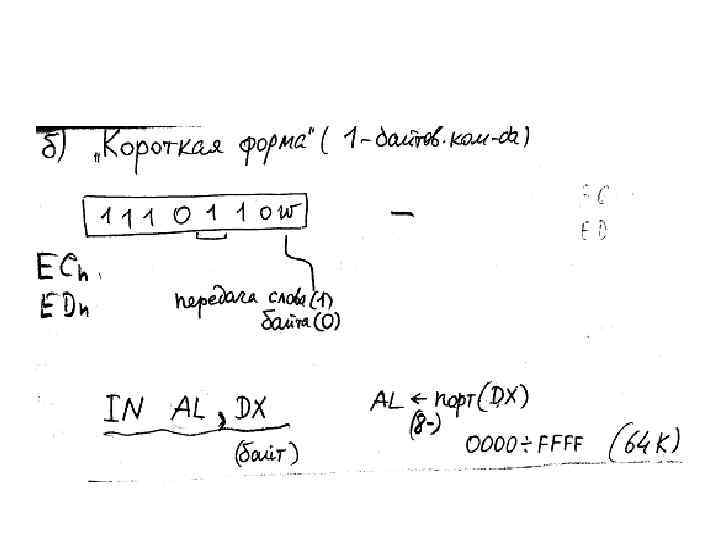 б) „Короткая форма“ ( 1-байтов. ком-да)
1 1 1 0 1 1 0 w —
EC
ED
ECh
EDh
передача слова (1)
байта (0)
IN AL, DX
(байт)
AL ← порт (DX)
(8-)
0000÷FFFF (64K)